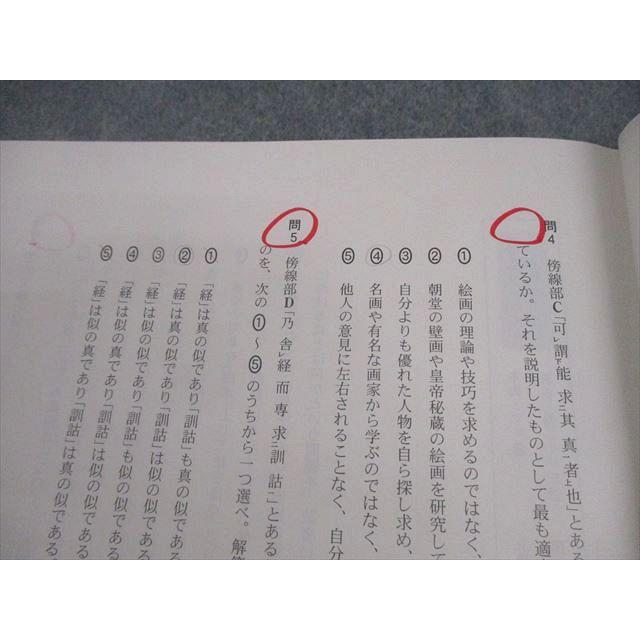 問4 傍線部C「可レ謂下能求二其真一者上也」とある
ているか。それを説明したものとして最も適
① 絵画の理論や技巧を求めるのではなく、
② 朝堂の壁画や皇帝秘蔵の絵画を研究して
③ 自分よりも優れた人物を自ら探し求め、
④ 名画や有名な画家から学ぶのではなく、
⑤ 他人の意見に左右されることなく、自分
問5 傍線部D「乃舎レ経而専求二訓詁一」とある
のを、次の①～⑤のうちから一つ選べ。解答
① 「経」は真の似であり「訓詁」も真の似である
② 「経」は真の似であり「訓詁」は似の似である
③ 「経」は似の似であり「訓詁」は似の似である
④ 「経」は似の似であり「訓詁」も似の似である
⑤ 「経」は似の真であり「訓詁」は真の似である